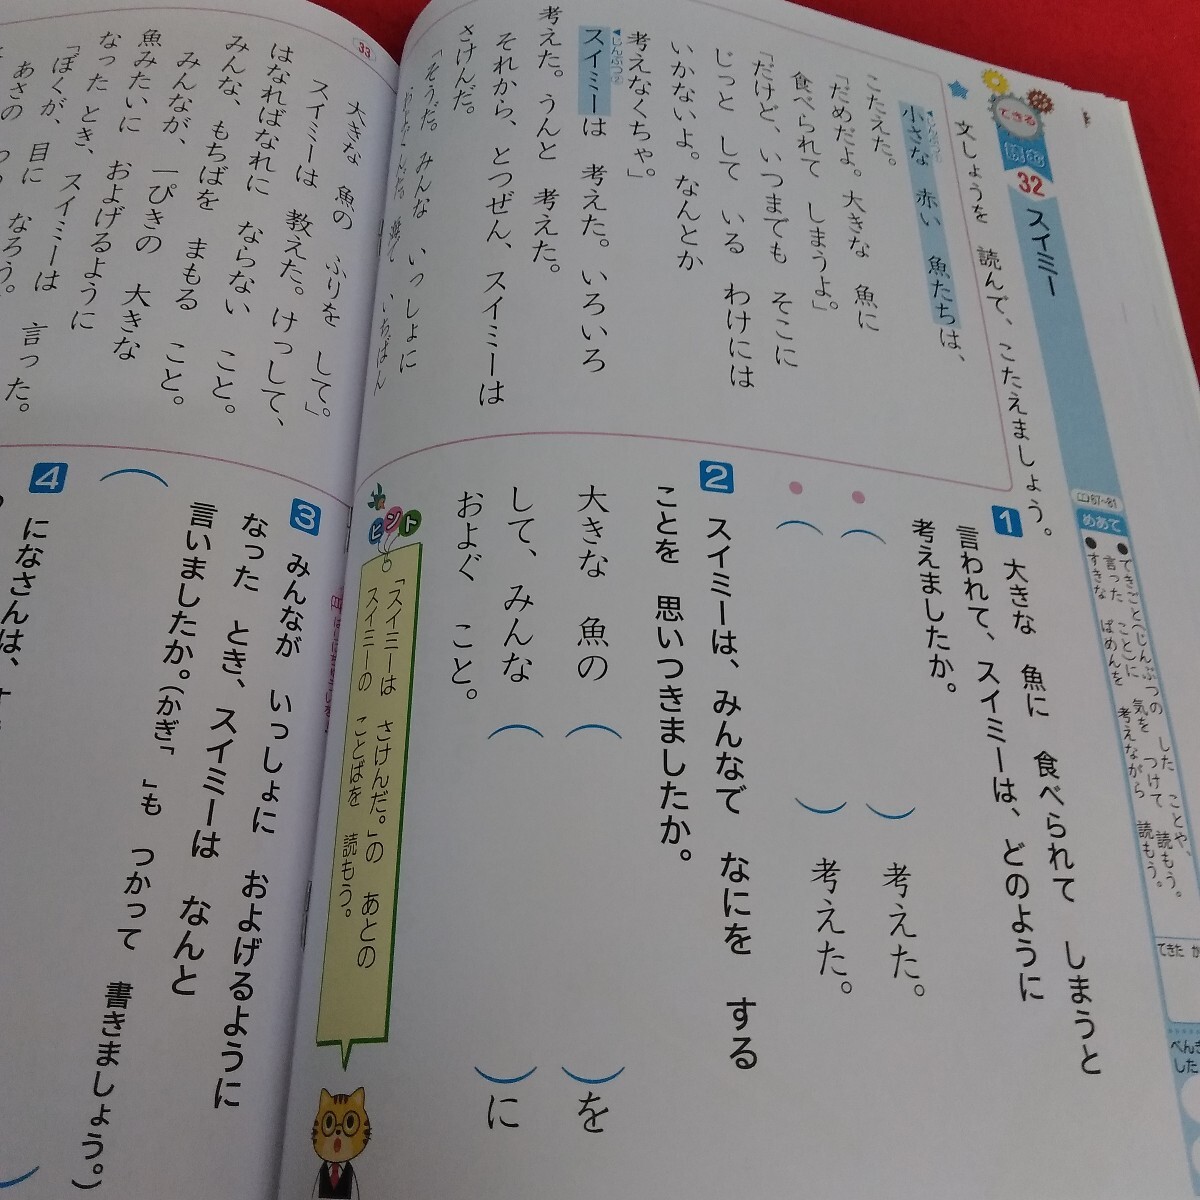 できる
読む
32
スイミー
67~81
めあて
●できごとに(じんぶつの した ことや、
言った ことに 気を つけて 読もう。
●すきな ばめんを 考えながら 読もう。
できた
べんき
した
文しょうを 読んで、こたえましょう。
小さな 赤い 魚たちは、
こたえた。
「だめだよ。大きな 魚に
食べられて しまうよ。」
「だけど、いつまでも そこに
じっと して いる わけには
いかないよ。なんとか
考えなくちゃ。」
じんぶつ②
スイミーは 考えた。いろいろ
考えた。うんと 考えた。
それから、とつぜん、スイミーは
さけんだ。
「そうだ。みんな いっしょに
1 大きな 魚に 食べられて しまうと
言われて、スイミーは、どのように
考えましたか。
( ) 考えた。
( ) 考えた。
2 スイミーは、みんなで なにを する
ことを 思いつきましたか。
大きな 魚の ( )を
して、みんな ( )に
およぐ こと。
ヒント
「スイミーは さけんだ。」の あとの
スイミーの ことばを 読もう。
33
大きな 魚の ふりを して。」
スイミーは 教えた。けっして、
はなればなれに ならない こと。
みんな、もちばを まもる こと。
みんなが、一ぴきの 大きな
魚みたいに およげるように
なった とき、スイミーは 言った。
「ぼくが、目に なろう。
あさの
3 みんなが いっしょに およげるように
なった とき、スイミーは なんと
言いましたか。(かぎ「 」も つかって 書きましょう。)
4
になさんは、